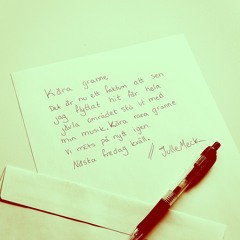 Kära granne
Det är nu ett faktum att sen
jag flyttat hit får hela
jävla området stå ut med
min musik. Kära nära granne
vi mörs på nytt igen.
Nästa fredag kväll.
// JulleMeck